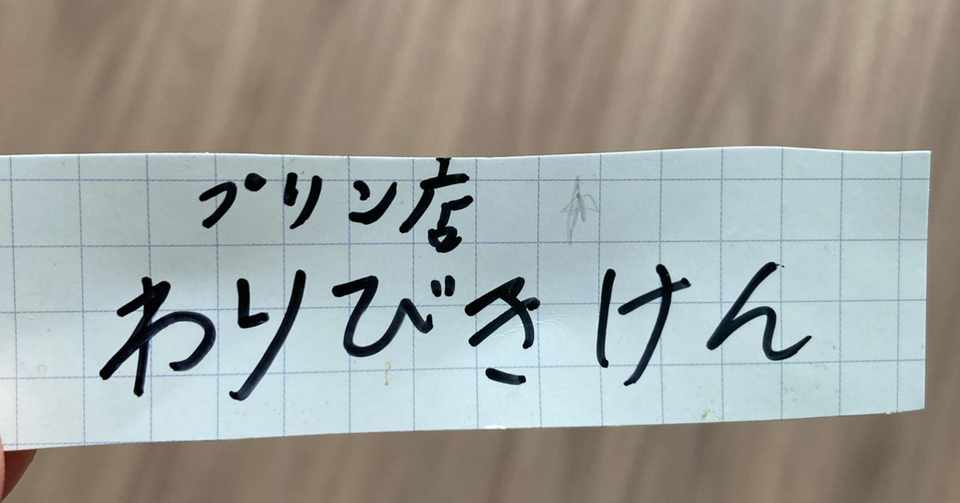 プリン店
わりびきけん